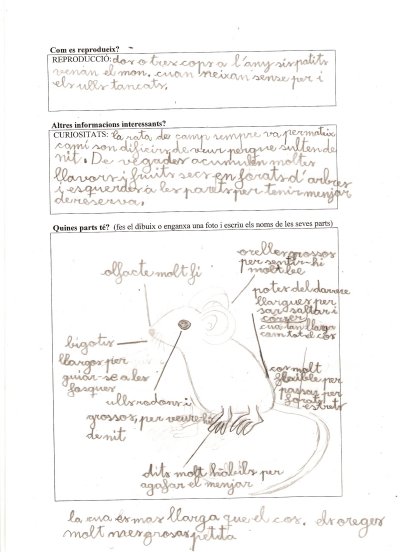 Com es reprodueix?
REPRODUCCIÓ: dos o tres cops a l'any sis petits
venan el mon. cuan neixan sense per i
els ulls tancats.
Altres informacions interessants?
CURIOSITATS: la rata de camp sempre va per mateix
camí son dificirs de veur perque surten de
nit. De vegades acumulen moltes
llavors i fruits secs en forats d'arbres
i esquerdes a les parets per tenir menjar
de reserva.
Quines parts té? (fes el dibuix o enganxa una foto i escriu els noms de les seves parts)
orelles grossos
per sentir-hi
molt be
olfacte molt fi
potes del darrere
llargues per
saltar i
correr
cua tan llarga
com tot el cos
bigotis
llargos per
guiar-se a les
fosques
cos molt
flexible per
passar per
forats
estrets
ulls rodons i
grossos, per veure-hi
de nit
dits molt hàbils per
agafar el menjar
la cua es mas llarga que el cos. els oreges
molt mes grosas petita